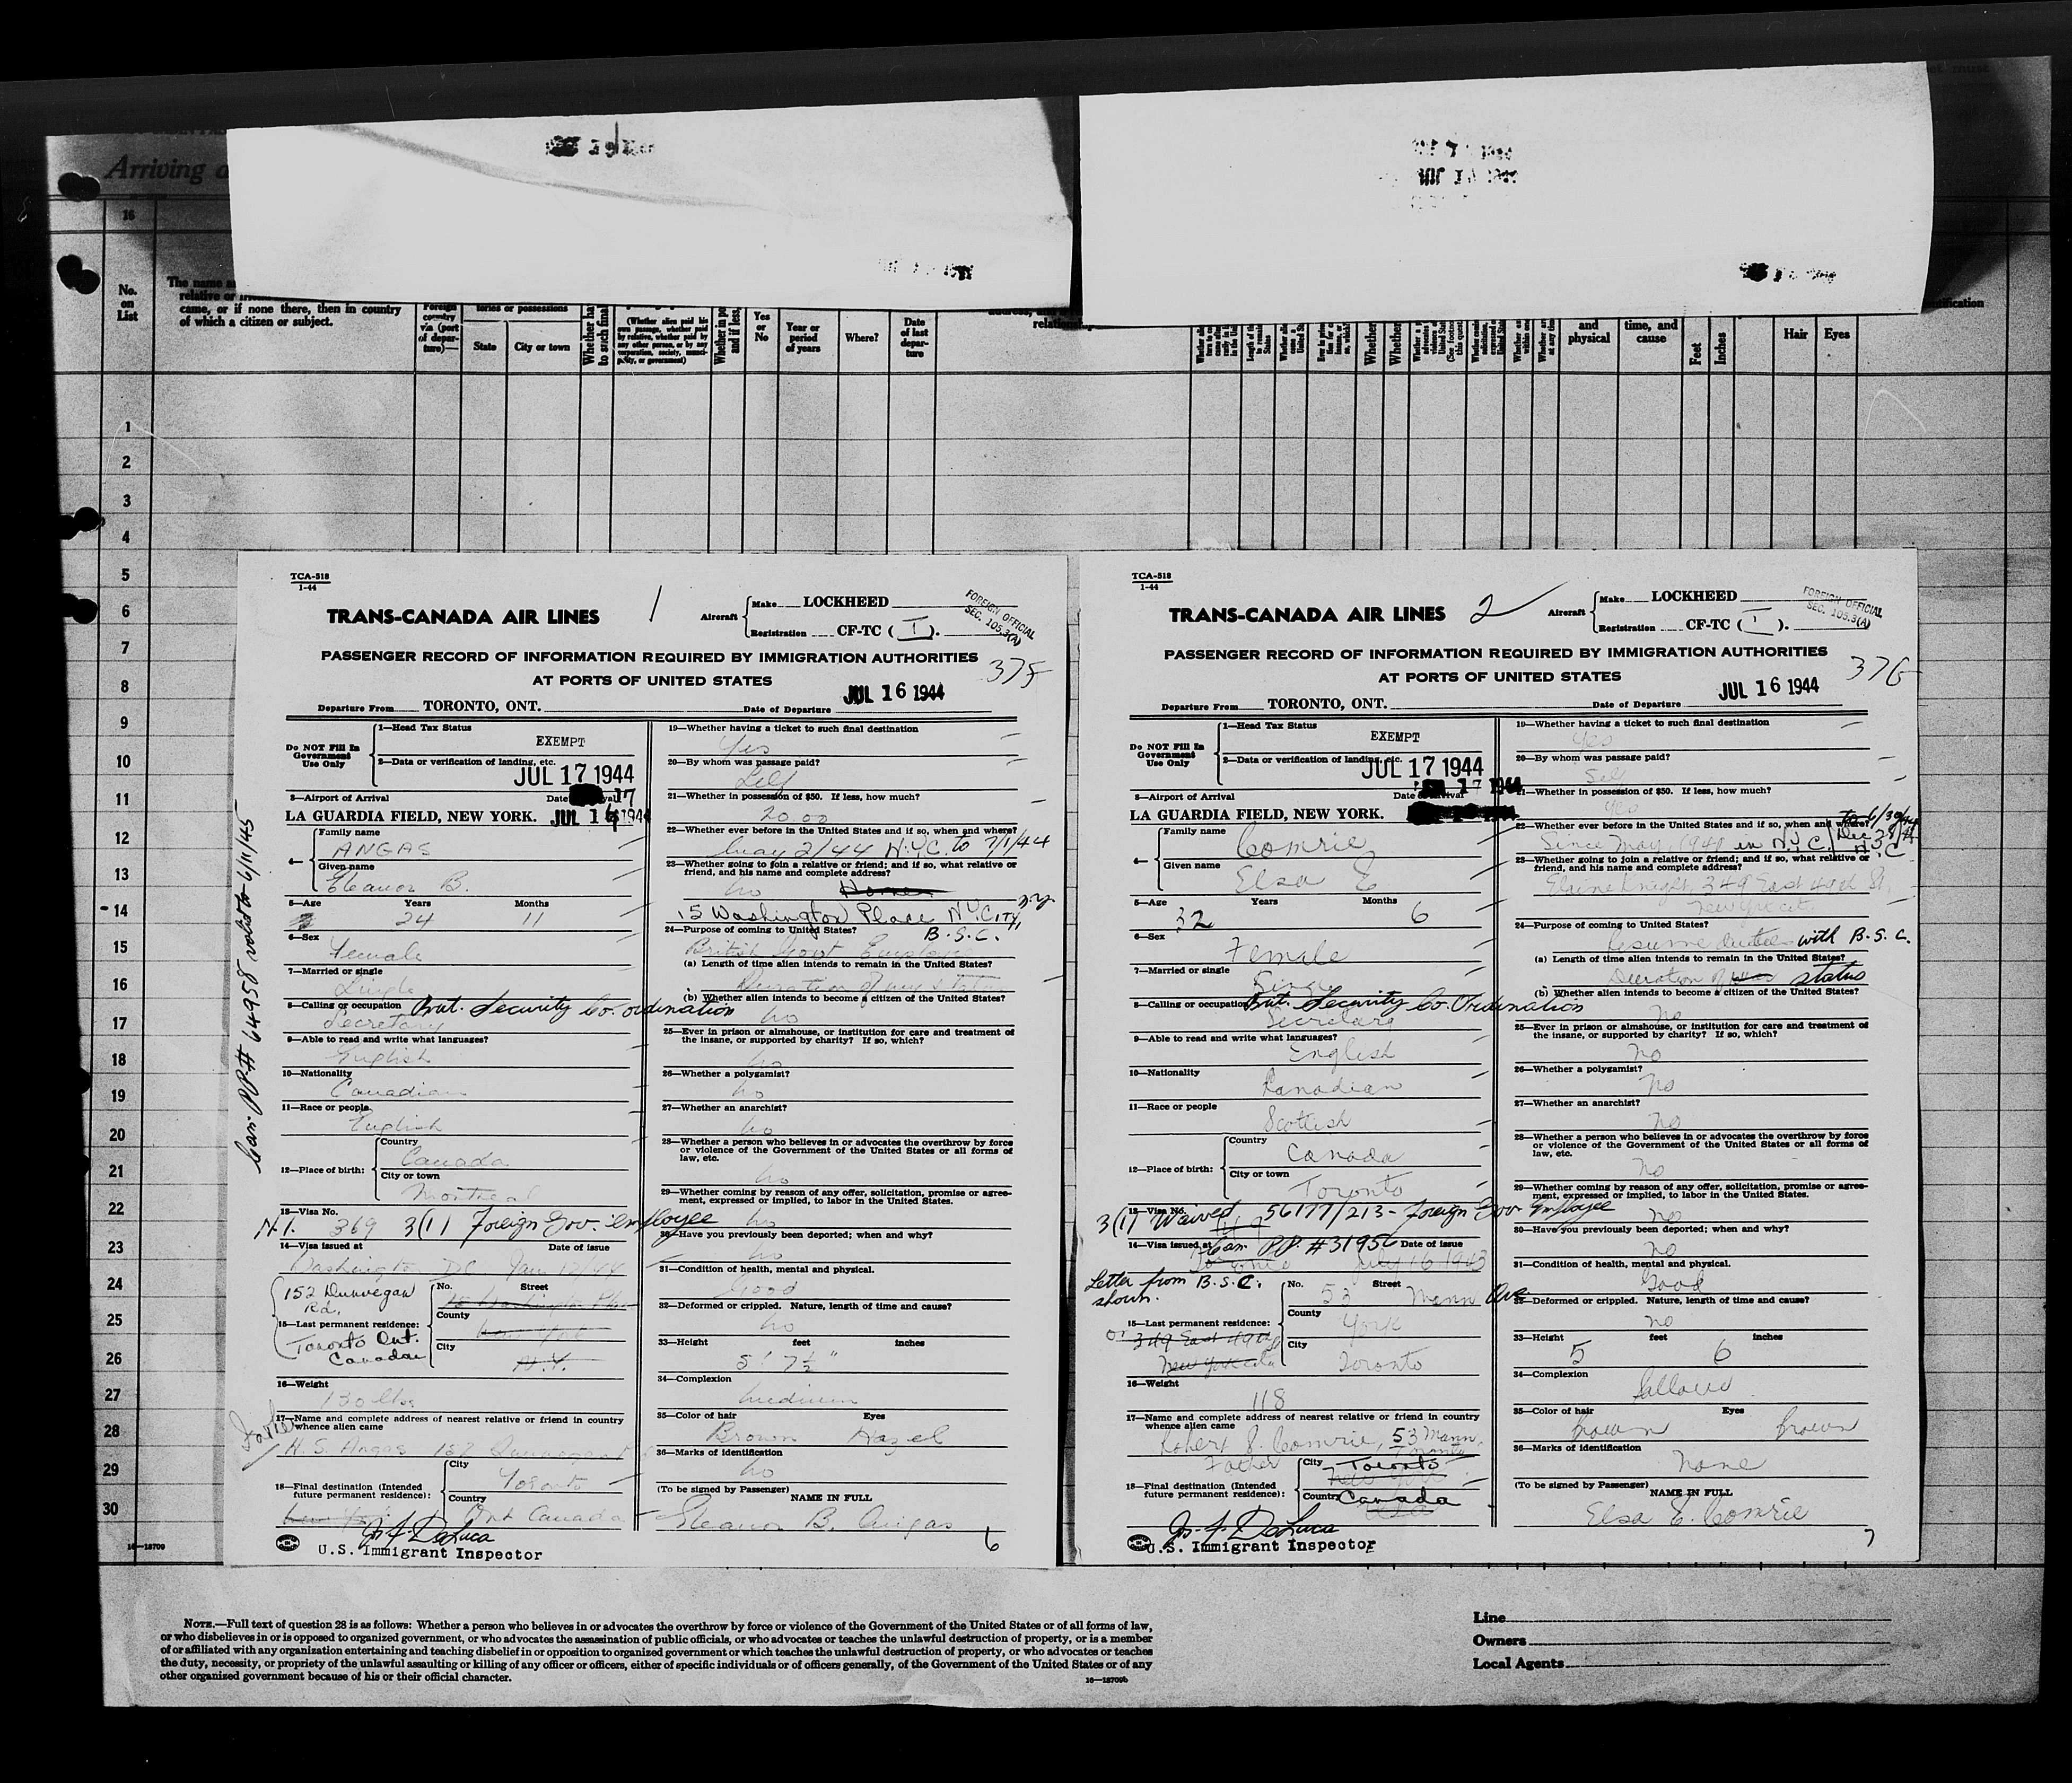 Arriving a
16
No.
on
List
The name a
relative or
came, or if none there, then in country
of which a citizen or subject.
Foreign
country
via (port
of depar-
ture)—
tories or possessions
State
City or town
Whether ha
to such final
(Whether alien paid his
own passage, whether paid
by relative, whether paid by
any other person, or by any
corporation, society, munici-
pality, or government)
Whether in po
and if less,
Yes
or
No
Year or
period
of years
Where?
Date
of last
depar-
ture
relation
Whether
Whether
and
physical
time, and
cause
Feet
Inches
Hair
Eyes
1
2
3
4
5
6
7
8
9
10
11
12
13
14
15
16
17
18
19
20
21
22
23
24
25
26
27
28
29
30
TCA-518
1-44
TRANS-CANADA AIR LINES
1
Aircraft
Make LOCKHEED
Registration CF-TC ( I ).
FOREIGN OFFICIAL
SEC. 105.3(A)
PASSENGER RECORD OF INFORMATION REQUIRED BY IMMIGRATION AUTHORITIES
AT PORTS OF UNITED STATES
375
JUL 16 1944
Departure From TORONTO, ONT. Date of Departure
Do NOT Fill In
Government
Use Only
1—Head Tax Status
EXEMPT
2—Data or verification of landing, etc.
JUL 17 1944
3—Airport of Arrival Date
17
LA GUARDIA FIELD, NEW YORK. JUL 1 1944
4—
Family name
ANGAS
Given name
Eleanor B.
5—Age Years Months
24 11
6—Sex
Female
7—Married or single
Single
8—Calling or occupation Brit. Security Co. ordination
Secretary
9—Able to read and write what languages?
English
10—Nationality
Canadian
11—Race or people
English
12—Place of birth:
Country
Canada
City or town
Montreal
13—Visa No.
N.I. 369 3(1) Foreign Gov. employee
14—Visa issued at Date of issue
Washington DC Jan
152 Dunvegan
Rd.
15—Last permanent residence:
Toronto Ont.
Canada
No. Street
15 Washington Place
County
New York
City
N.Y.
16—Weight
130 lbs
17—Name and complete address of nearest relative or friend in country
whence alien came
Father
H. S. Angas 152 Dunvegan
18—Final destination (Intended
future permanent residence):
City
Toronto
Country
New York Ont Canada
U.S. Immigrant Inspector
Can. PP# 64958 valid to 6/11/45
19—Whether having a ticket to such final destination
Yes
20—By whom was passage paid?
Self
21—Whether in possession of $50. If less, how much?
20.00
22—Whether ever before in the United States and if so, when and where?
May 2/44 N.Y.C. to 7/1/44
23—Whether going to join a relative or friend; and if so, what relative or
friend, and his name and complete address?
no
15 Washington Place N.Y. CITY, N.Y.
24—Purpose of coming to United States? B.S.C.
British Govt
(a) Length of time alien intends to remain in the United States?
Duration of my status
(b) Whether alien intends to become a citizen of the United States?
no
25—Ever in prison or almshouse, or institution for care and treatment of
the insane, or supported by charity? If so, which?
no
26—Whether a polygamist?
no
27—Whether an anarchist?
no
28—Whether a person who believes in or advocates the overthrow by force
or violence of the Government of the United States or all forms of
law, etc.
no
29—Whether coming by reason of any offer, solicitation, promise or agree-
ment, expressed or implied, to labor in the United States.
no
30—Have you previously been deported; when and why?
no
31—Condition of health, mental and physical.
Good
32—Deformed or crippled. Nature, length of time and cause?
no
33—Height feet inches
5' 7½"
34—Complexion
medium
35—Color of hair Eyes
Brown Hazel
36—Marks of identification
no
(To be signed by Passenger)
NAME IN FULL
Eleanor B. Angas
6
TCA-518
1-44
TRANS-CANADA AIR LINES
2
Aircraft
Make LOCKHEED
Registration CF-TC ( I ).
FOREIGN OFFICIAL
SEC. 105.3(A)
PASSENGER RECORD OF INFORMATION REQUIRED BY IMMIGRATION AUTHORITIES
AT PORTS OF UNITED STATES
376
JUL 16 1944
Departure From TORONTO, ONT. Date of Departure
Do NOT Fill In
Government
Use Only
1—Head Tax Status
EXEMPT
2—Data or verification of landing, etc.
JUL 17 1944
3—Airport of Arrival Date of Arrival
17 1944
LA GUARDIA FIELD, NEW YORK.
4—
Family name
Comrie
Given name
Elsa E
5—Age Years Months
32 6
6—Sex
Female
7—Married or single
Single
8—Calling or occupation Brit. Security Co. Ordination
Secretary
9—Able to read and write what languages?
English
10—Nationality
Canadian
11—Race or people
Scottish
12—Place of birth:
Country
Canada
City or town
Toronto
13—Visa No.
3(1) Waived 56177/213 - Foreign Gov Employee
14—Visa issued at Can PP. #31956 Date of issue
Toronto July 16 1943
Letter from B.S.C.
shown.
15—Last permanent residence:
or 349 East 49th
New York City
No. Street
53 Mann Ave
County
York
City
Toronto
16—Weight
118
17—Name and complete address of nearest relative or friend in country
whence alien came
Robert S. Comrie, 53 Mann,
Father Toronto
18—Final destination (Intended
future permanent residence):
City Toronto
New York
Country Canada
USA
U.S. Immigrant Inspector
19—Whether having a ticket to such final destination
Yes
20—By whom was passage paid?
Self
21—Whether in possession of $50. If less, how much?
yes
to 6/30/44
22—Whether ever before in the United States and if so, when and where?
Since May, 1941 in N.Y.C.
23—Whether going to join a relative or friend; and if so, what relative or
friend, and his name and complete address?
Elaine Knight, 349 East 49th St,
New York City
24—Purpose of coming to United States?
Resume duties with B.S.C.
(a) Length of time alien intends to remain in the United States?
Duration of status
(b) Whether alien intends to become a citizen of the United States?
no
25—Ever in prison or almshouse, or institution for care and treatment of
the insane, or supported by charity? If so, which?
no
26—Whether a polygamist?
no
27—Whether an anarchist?
no
28—Whether a person who believes in or advocates the overthrow by force
or violence of the Government of the United States or all forms of
law, etc.
no
29—Whether coming by reason of any offer, solicitation, promise or agree-
ment, expressed or implied, to labor in the United States.
no
30—Have you previously been deported; when and why?
no
31—Condition of health, mental and physical.
Good
32—Deformed or crippled. Nature, length of time and cause?
no
33—Height feet inches
5 6
34—Complexion
Sallow
35—Color of hair Eyes
brown brown
36—Marks of identification
none
(To be signed by Passenger)
NAME IN FULL
Elsa E. Comrie
7
16—18709
NOTE.—Full text of question 28 is as follows: Whether a person who believes in or advocates the overthrow by force or violence of the Government of the United States or of all forms of law,
or who disbelieves in or is opposed to organized government, or who advocates the assassination of public officials, or who advocates or teaches the unlawful destruction of property, or is a member
of or affiliated with any organization entertaining and teaching disbelief in or opposition to organized government or which teaches the unlawful destruction of property, or who advocates or teaches
the duty, necessity, or propriety of the unlawful assaulting or killing of any officer or officers, either of specific individuals or of officers generally, of the Government of the United States or of any
other organized government because of his or their official character.
16—18709b
Line
Owners
Local Agents